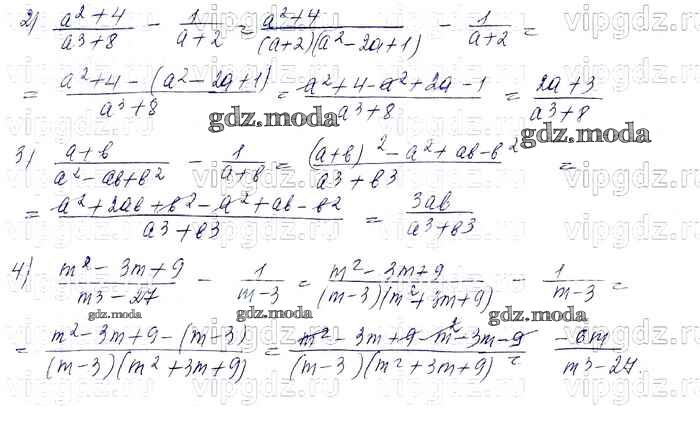 2) (a²+4)/(a³+8) - 1/(a+2) = (a²+4)/((a+2)(a²-2a+1)) - 1/(a+2) =
= (a²+4-(a²-2a+1))/(a³+8) = (a²+4-a²+2a-1)/(a³+8) = (2a+3)/(a³+8)
gdz.moda
gdz.moda
3) (a+b)/(a²-ab+b²) - 1/(a+b) = ((a+b)²-a²+ab-b²)/(a³+b3) =
= (a²+2ab+b²-a²+ab-b2)/(a3+b3) = 3ab/(a3+b3)
4) (m²-3m+9)/(m3-27) - 1/(m-3) = (m²-3m+9)/((m-3)(m²+3m+9)) - 1/(m-3) =
gdz.moda
gdz.moda
gdz.moda
= (m²-3m+9-(m-3))/((m-3)(m²+3m+9)) = (m²-3m+9-m²-3m-9)/((m-3)(m²+3m+9)) = -6m/(m³-27)
vipgdz.ru